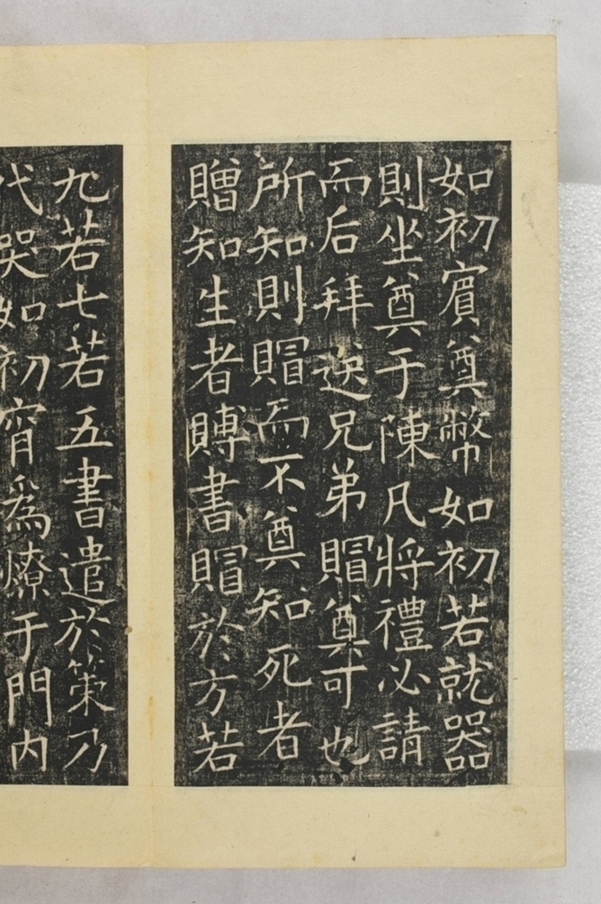 如初賓奠幣如初若就器
則坐奠于陳凡將禮必請
而后拜送兄弟賵奠可也
所知則賵而不奠知死者
贈知生者賻書賵於方若
九若七若五書遣於策乃
代哭如初宵爲燎于門内